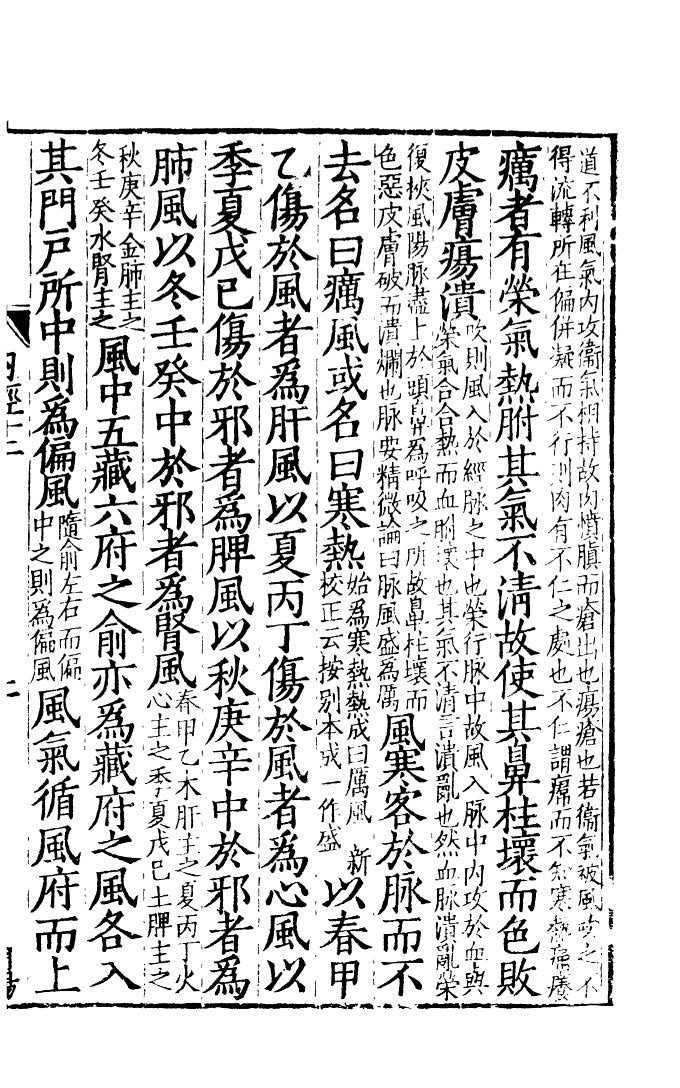 道不利風氣内攻衞氣相持故肉憤䐜而瘡出也瘍瘡也若衞氣被風吹之不
得流轉所在偏併凝而不行則肉有不仁之處也不仁謂㾏而不知寒熱痛癢
癘者有榮氣熱胕其氣不清故使其鼻柱壞而色敗
皮膚瘍潰吹則風入於經脉之中也榮行脉中故風入脉中内攻於血與
榮氣合合熱而血胕壞也其氣不清言潰亂也然血脉潰亂榮
復挾風陽脉盡上於頭鼻爲呼吸之所故鼻柱壞而
色惡皮膚破而潰爛也脉要精微論曰脉風盛爲厲風寒客於脉而不
去名曰癘風或名曰寒熱始爲寒熱熱成曰厲風 新
校正云按别本成一作盛以春甲
乙傷於風者爲肝風以夏丙丁傷於風者爲心風以
季夏戊已傷於邪者爲脾風以秋庚辛中於邪者爲
肺風以冬壬癸中於邪者爲腎風春甲乙木肝主之夏丙丁火
心主之季夏戊已土脾主之
秋庚辛金肺主之
冬壬癸水腎主之風中五藏六府之俞亦爲藏府之風各入
其門戸所中則爲偏風隨俞左右而偏
中之則爲偏風風氣循風府而上
内經十二
上